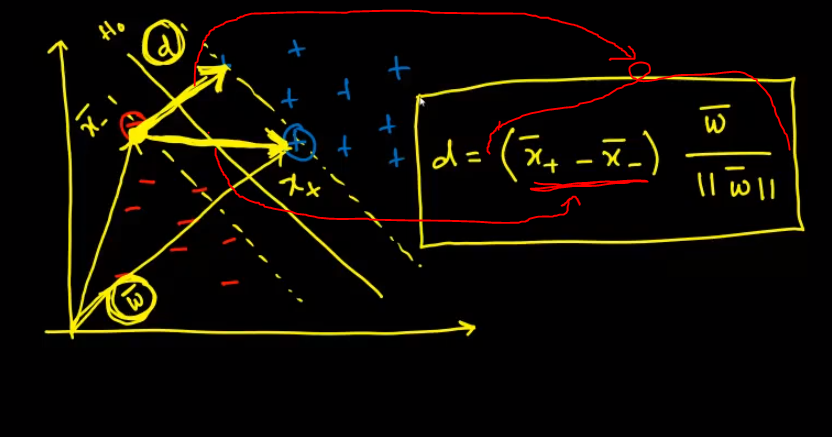 H₀
d
x̄₋
x̄ₓ
w̄
d = (x̄₊ - x̄₋) w̄ / ||w̄||